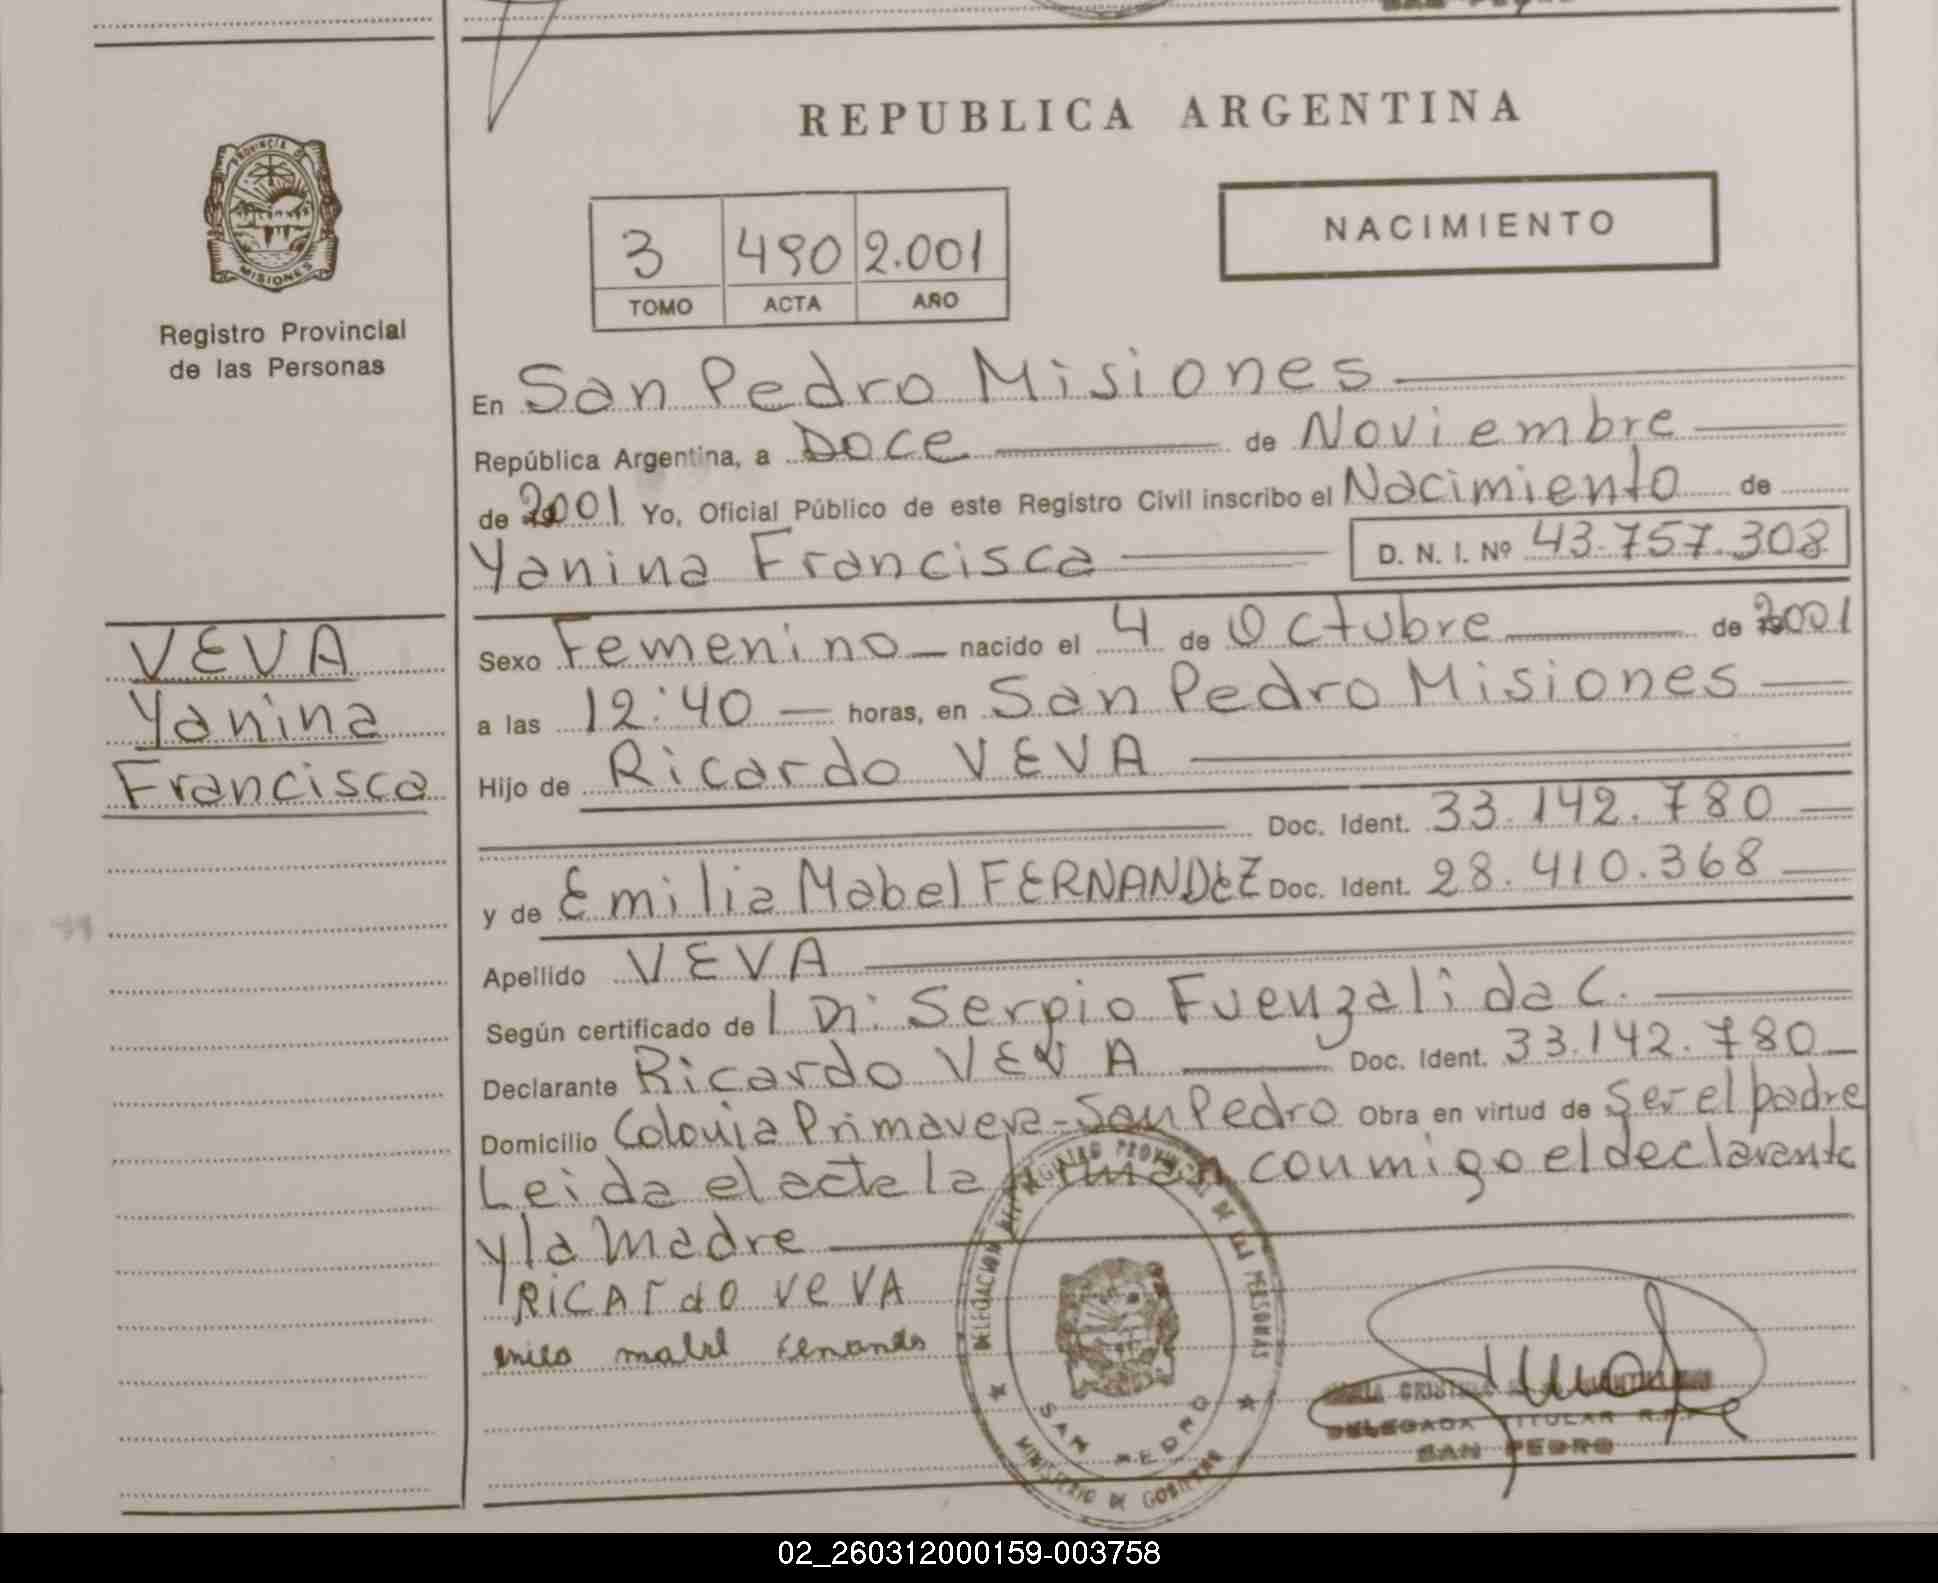 REPUBLICA ARGENTINA
PROVINCIA DE
MISIONES
Registro Provincial
de las Personas
NACIMIENTO
3 490 2.001
TOMO ACTA AÑO
En San Pedro Misiones
República Argentina, a Doce de Noviembre
de 2001 Yo, Oficial Público de este Registro Civil inscribo el Nacimiento de
Yanina Francisca D. N. I. Nº 43.757.308
VEVA
Yanina
Francisca
Sexo Femenino nacido el 4 de Octubre de 2001
a las 12:40 horas, en San Pedro Misiones
Hijo de Ricardo VEVA
Doc. Ident. 33.142.780
y de Emilia Mabel FERNANDEZ Doc. Ident. 28.410.368
Apellido VEVA
Según certificado de l Dr: Sergio Fuenzalida C.
Declarante Ricardo VEVA Doc. Ident. 33.142.780
Domicilio Colonia Primavera-San Pedro Obra en virtud de Ser el padre
Leida el acta la firman conmigo el declarante
y la madre
RiCArdO VeVA
mabel
DELEGACION REGISTRO PROVINCIAL DE LAS PERSONAS
SAN PEDRO
MINISTERIO DE GOBIERNO
DELEGADA TITULAR R.P.P.
SAN PEDRO
02_260312000159-003758